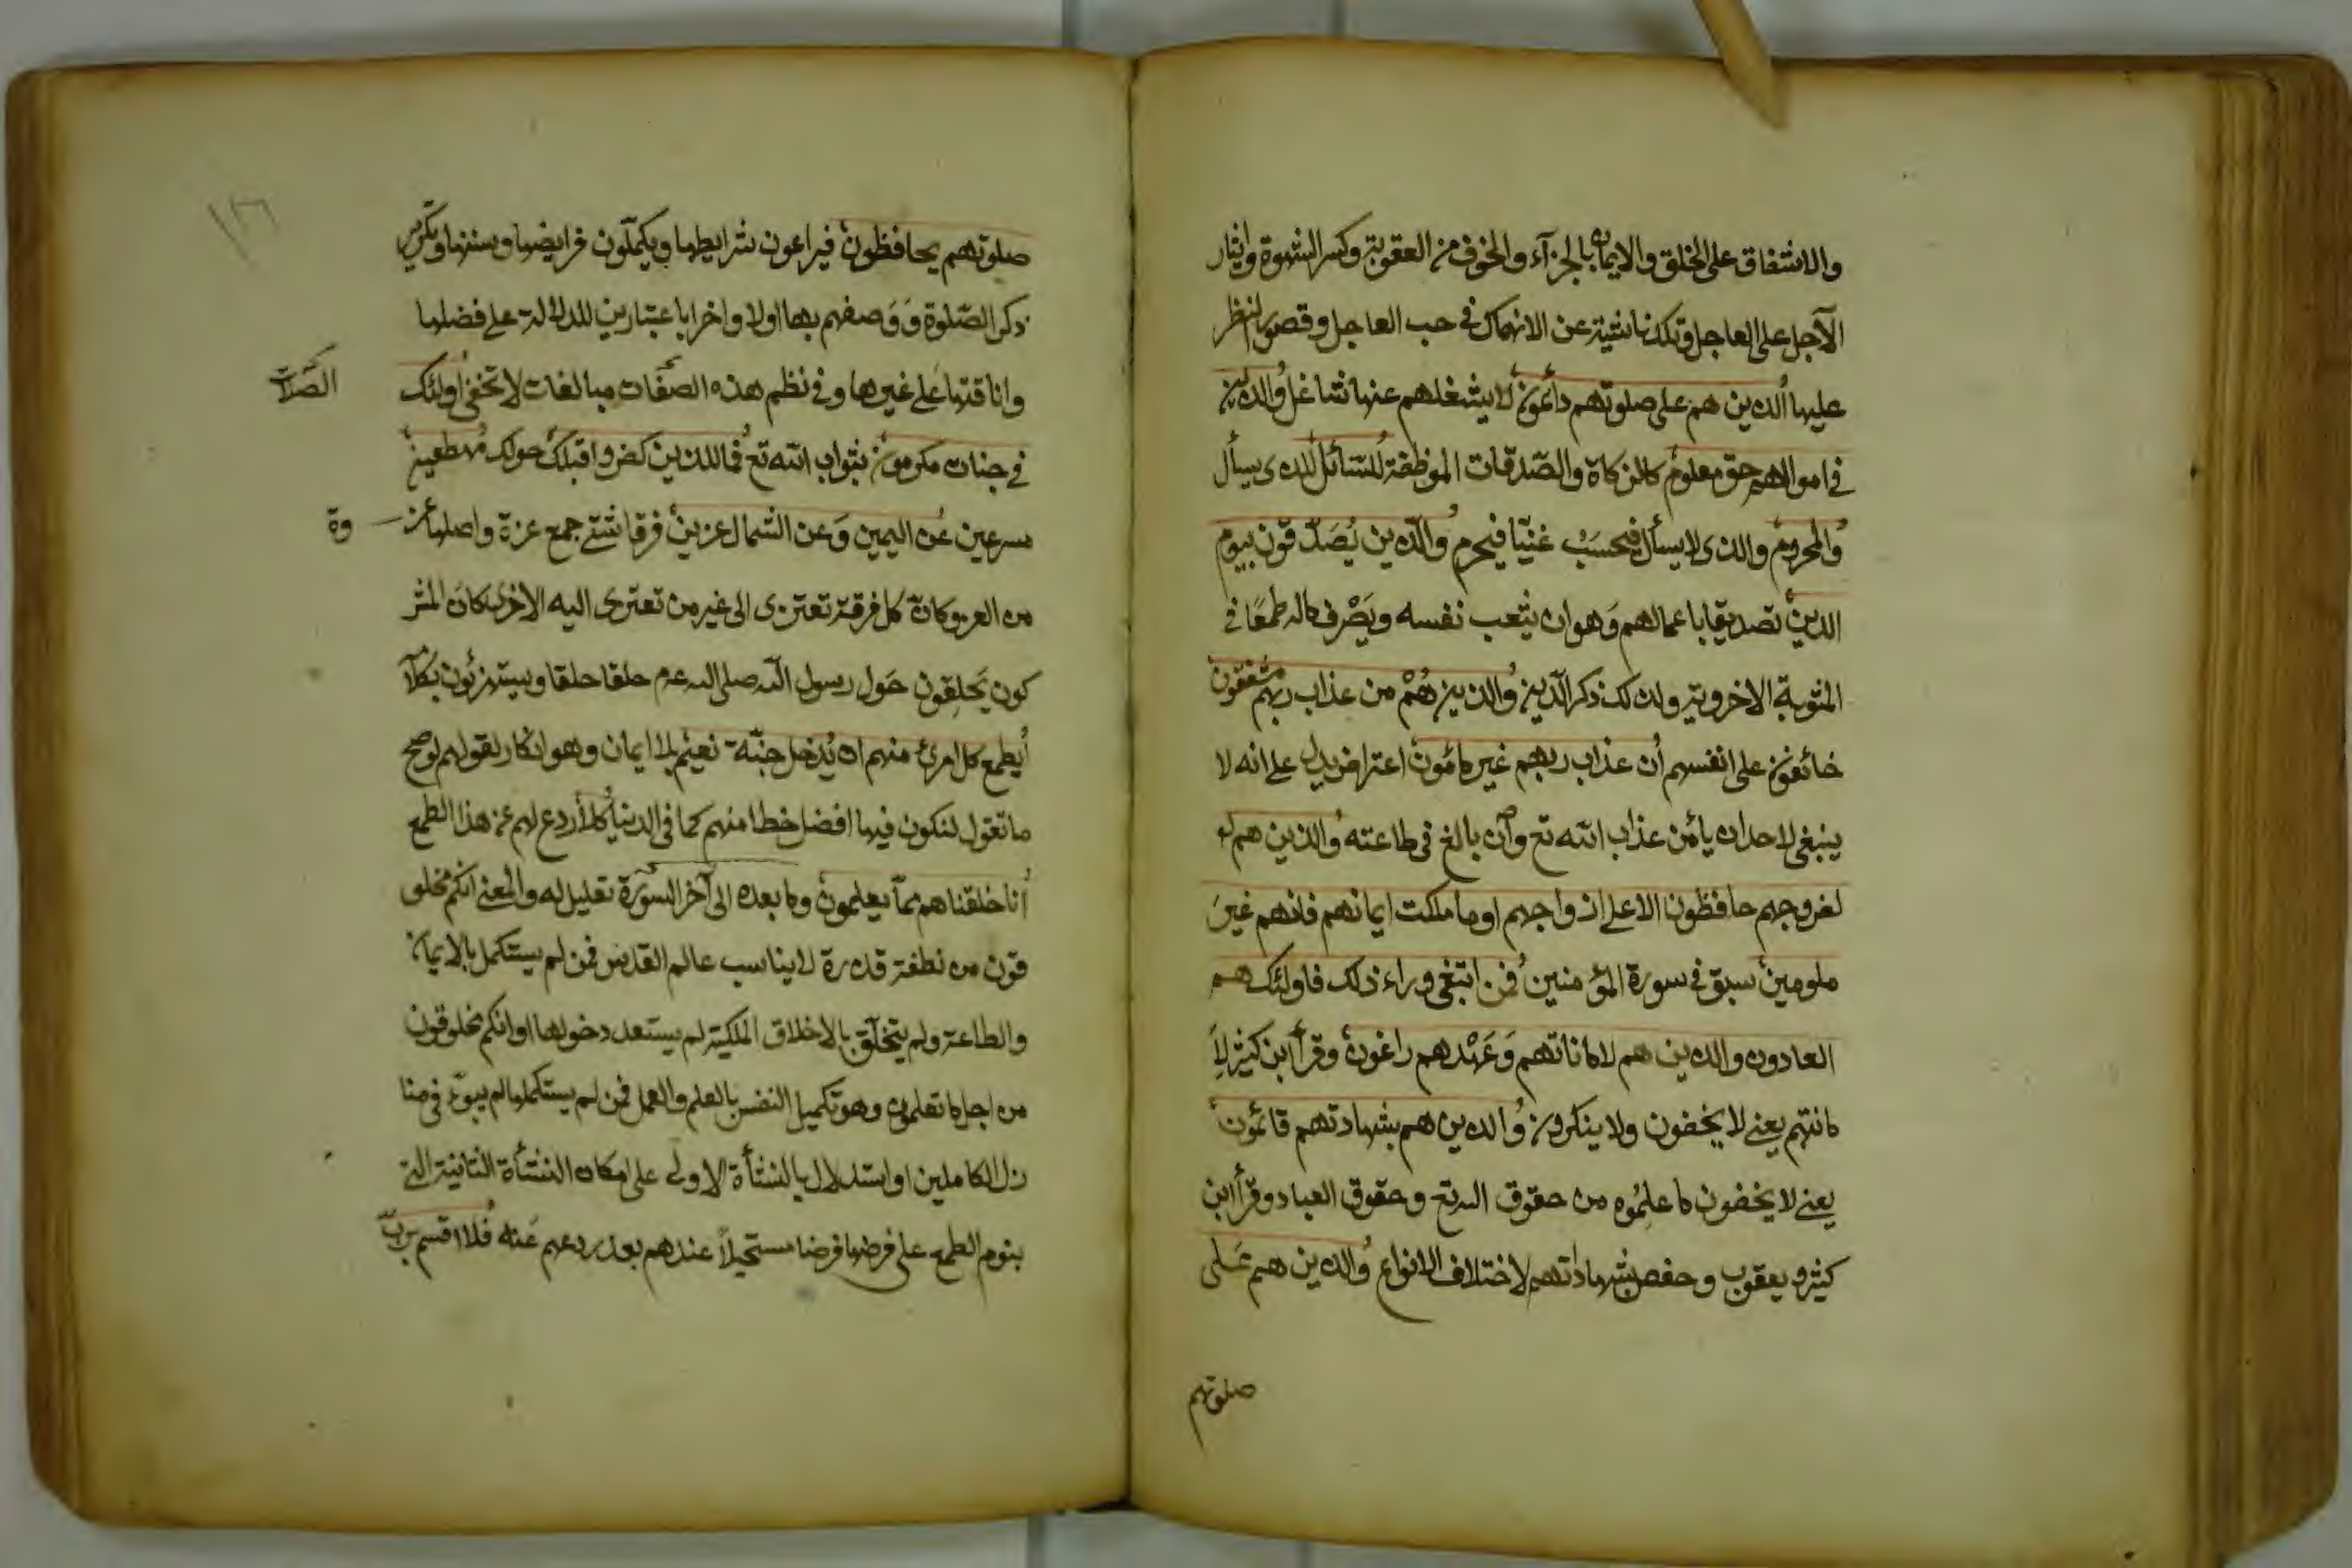 والاشفاق على الخلق والايمان بالجزآء والخوف من العقوبة وكسر الشهوة وايثار
الآجل على العاجل وتلك ناشئة عن الانهماك في حب العاجل وقصور النظر
عليها الذين هم على صلوتهم دائمون لا يشغلهم عنها شاغل والذين
في اموالهم حق معلوم كالزكاة والصّدقات الموظفة للسّائل للذى يسأل
والمحروم والذى لا يسأل فيحسَبْ غنيّا فيحرم والّذين يُصَدّقون بيوم
الدين تصديقا باعمالهم وَهو ان يتعب نفسه ويَصْرف ماله طمعًا في
المثوبة الاخروية ولذلك ذكر الّدين والذين هُمْ من عذاب ربهم مشفقون
خائفون على انفسهم أن عذاب ربهم غير مامُون اعتراض يدل على انه لا
ينبغى لاحد ان يأمن عذاب الله تع وان بالغ في طاعته والذين هم
لفروجهم حافظون الا على ازواجهم او ما ملكت ايمانهم فانهم غيرَ
ملومين سبق في سورة المؤمنين فمن ابتغى وراء ذلك فاولئك هم
العادون والذين هم لاماناتهم وَعَهْدهم راعون وقرأ ابن كثير لاَ
مانتهم يعنى لا يخفون ولا ينكرون والذين هم بشهادتهم قائمون
يعنى لا يخفون ما علمُوه من حقوق الله تع وحقوق العباد وقرأ ابن
كثير ويعقوب وحفص بشهاداتهم لاختلاف الانواع والذين هم عَلى
صلوتهم
١٢٦
صلوتهم يحافظون فيراعون شرايطها ويكمّلون فرايضها وسننها وتكرير
ذكر الصّلوة وَوَصفهم بها اولا واخرا باعتبارين للدلالة على فضلها
وانافتها عَلى غيرها وفي نظم هذه الصفات مبالغات لا تخفى اولئك
الصّلات
في جنات مكرمون بثواب الله تع فمال الذين كفروا قبلك حولك مُهطعين
مسرعين عن اليمين وَعن الشمال عزين فرقا شتى جمع عزة واصلها عز
وة
من العزو كانّ كل فرقة تعتزى الى غير من تعتزى اليه الاخرى كان المشر
كون يَحلقون حَول رسول الله صلى الله عم حلقا حلقا ويستهزئون بكلامه
أيطمع كل امرئ منهم ان يُدخل جنّة نعيم بلا ايمان وهو انكار لقولهم لو صح
ما تقول لنكون فيها افضل خطا منهم كما في الدنيا كلا أردع لهم عن هذا الطمع
أنا خلقناهم ممّا يعلمون وما بعده الى آخر السورة تعليل له والمعنى انكم مخلو
قون من نطفة قذرة لا يناسب عالم القدس فمن لم يستكمل بالايمان
والطاعة ولم يتخلّق بالاخلاق الملكية لم يستعد دخولها او انكم مخلوقون
من اجل ما تعلمون وهو تكميل النفس بالعلم والعمل فمن لم يستكملها لم يبوّء في منا
زل الكاملين او استدلال بالنشأة الاولى على امكان النشأة الثانية التى
بنوم الطمع على فرضها فرضا مستحيلاً عندهم بعد ردعهم عَنه فلا اقسم بربّ